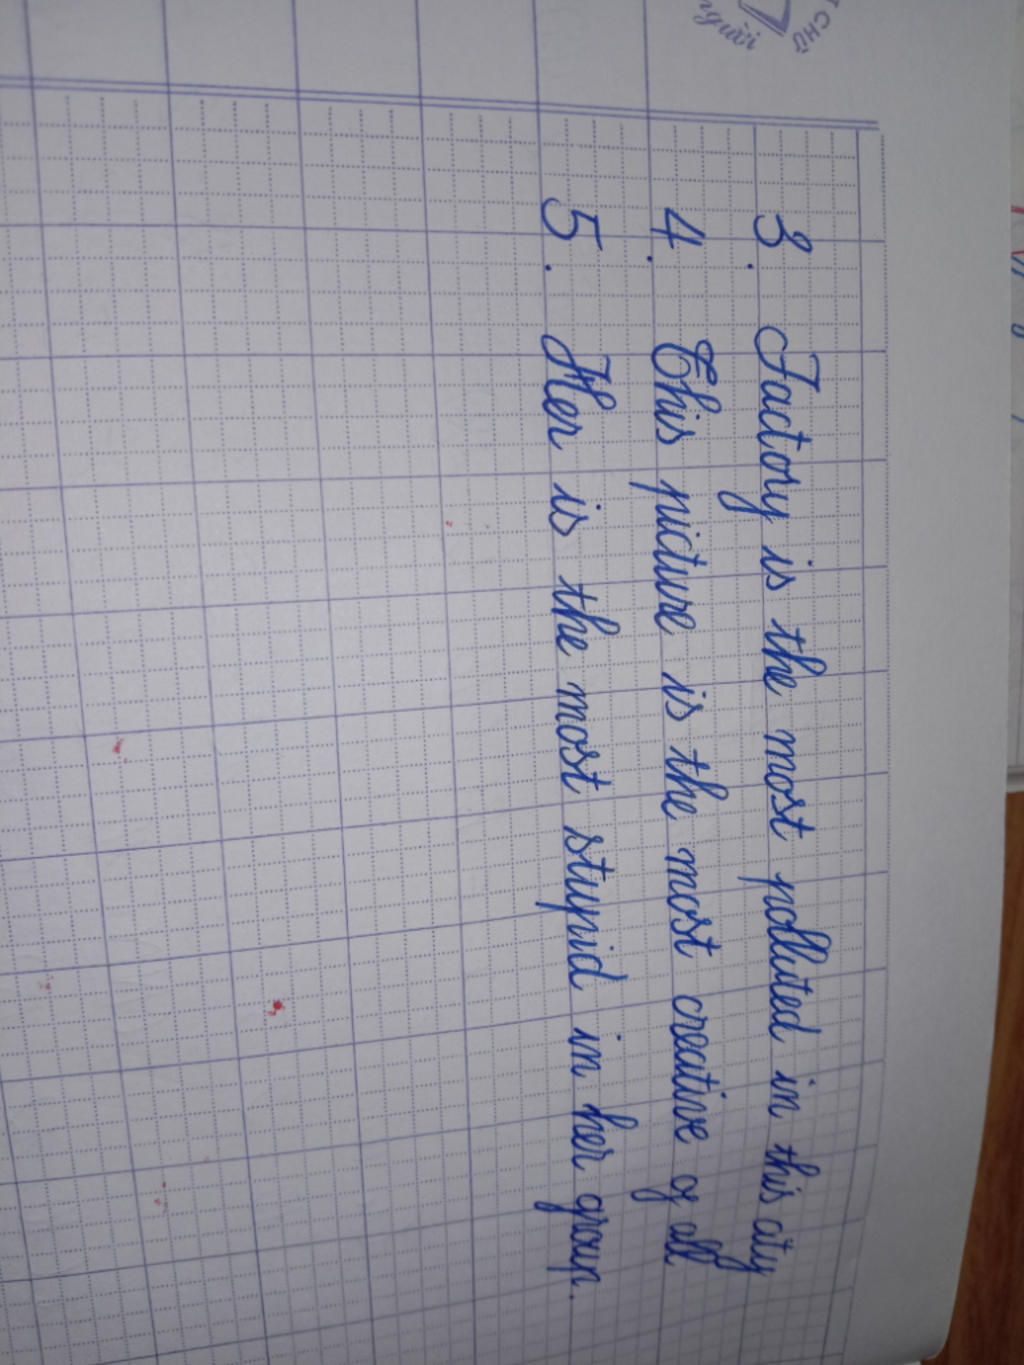 người
T CHỮ
3. Factory is the most polluted in this city
4. This picture is the most creative of all
5. Her is the most stupid in her group.